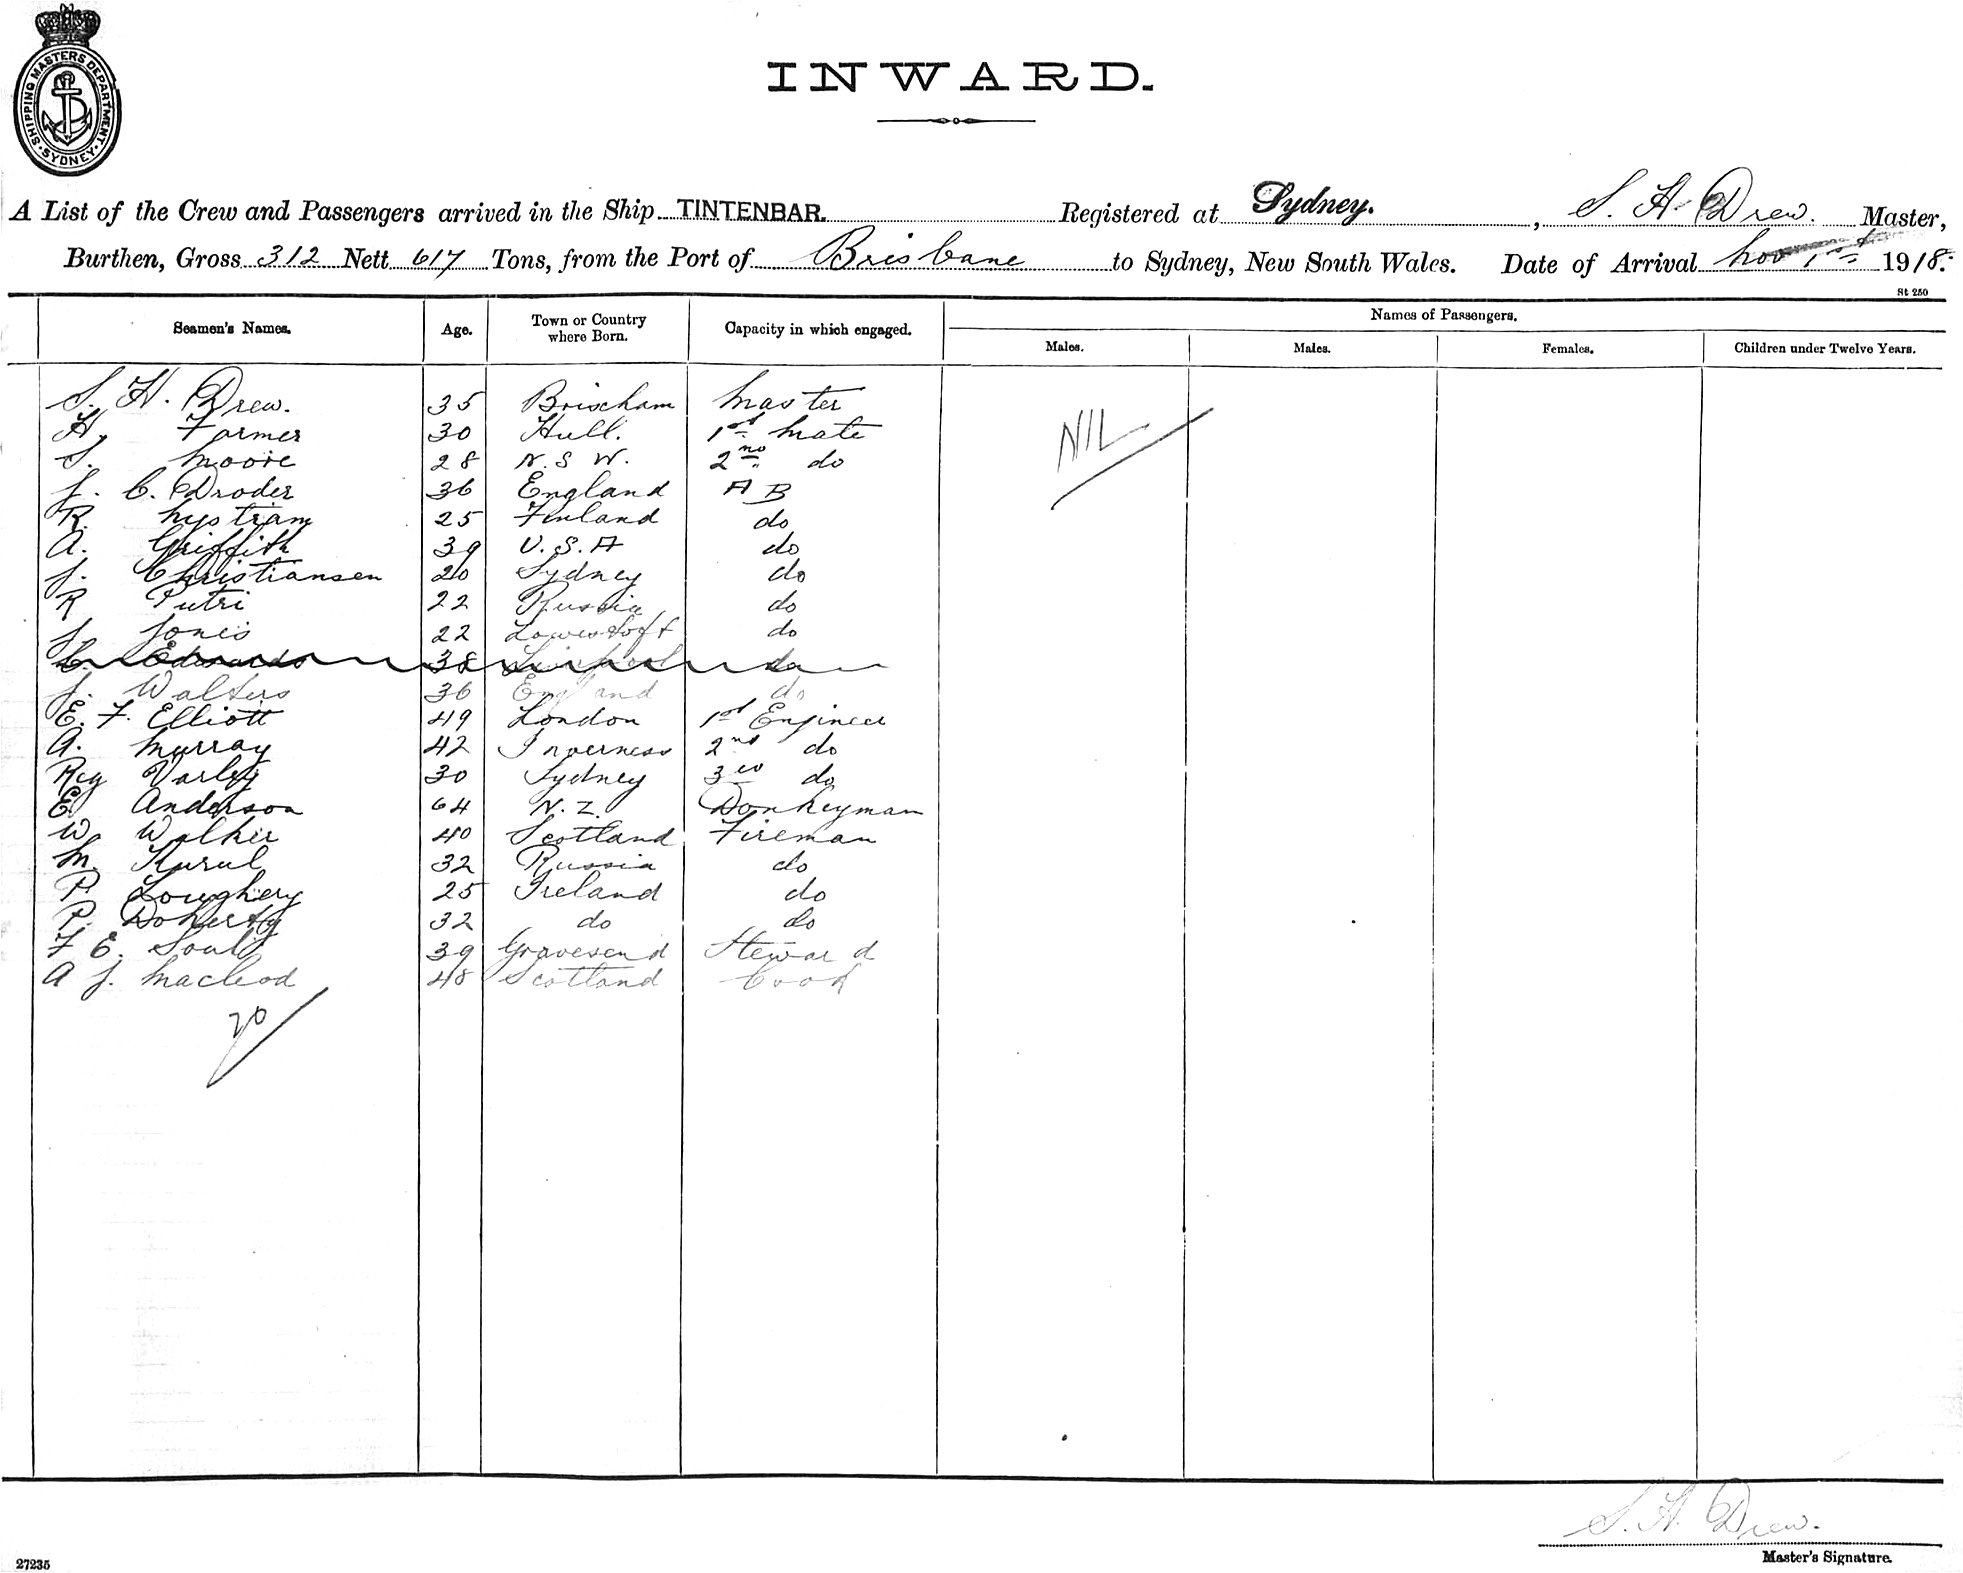 SHIPPING MASTERS DEPARTMENT. SYDNEY.
INWARD.
A List of the Crew and Passengers arrived in the Ship TINTENBAR. Registered at Sydney. , S. H. Drew. Master,
Burthen, Gross 312 Nett 617 Tons, from the Port of Brisbane to Sydney, New South Wales. Date of Arrival Nov 1st 1918.
St 250
Seamen's Names. Age. Town or Country where Born. Capacity in which engaged. Names of Passengers.
Males. Males. Females. Children under Twelve Years.
S. H. Drew. 35 Brixham Master
H. Farmer 30 Hull. 1st Mate
S. Moore 28 N. S. W. 2nd do
J. C. Droder 36 England A B
R. Nystram 25 Finland do
A. Griffith 39 U. S. A do
J. Christiansen 20 Sydney do
R Putri 22 Russia do
J. Jones 22 Lowestoft do
C. Edwards 38 do
J. Walters 36 England do
E. F. Elliott 49 London 1st Engineer
A. Murray 42 Inverness 2nd do
Reg Varley 30 Sydney 3rd do
E. Anderson 64 N. Z. Donkeyman
W. Walker 40 Scotland Fireman
M. Kurul 32 Russia do
P. Loughery 25 Ireland do
P. Doherty 32 do do
F E. 39 Gravesend Steward
A J. Macleod 48 Scotland Cook
NIL
20
S. H. Drew.
Master's Signature.
27235